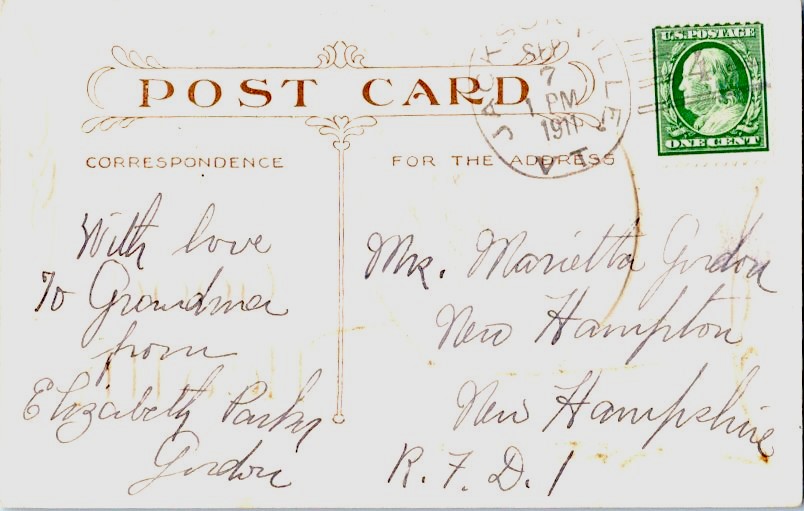 POST CARD
CORRESPONDENCE
FOR THE ADDRESS
JACKSONVILLE
SEP
7
1 PM
1911
VT.
4
U.S. POSTAGE
ONE CENT
With love
To Grandma
from
Elizabeth Parks
Gordon
Mrs. Marietta Gordon
New Hampton
New Hampshire
R. F. D. 1